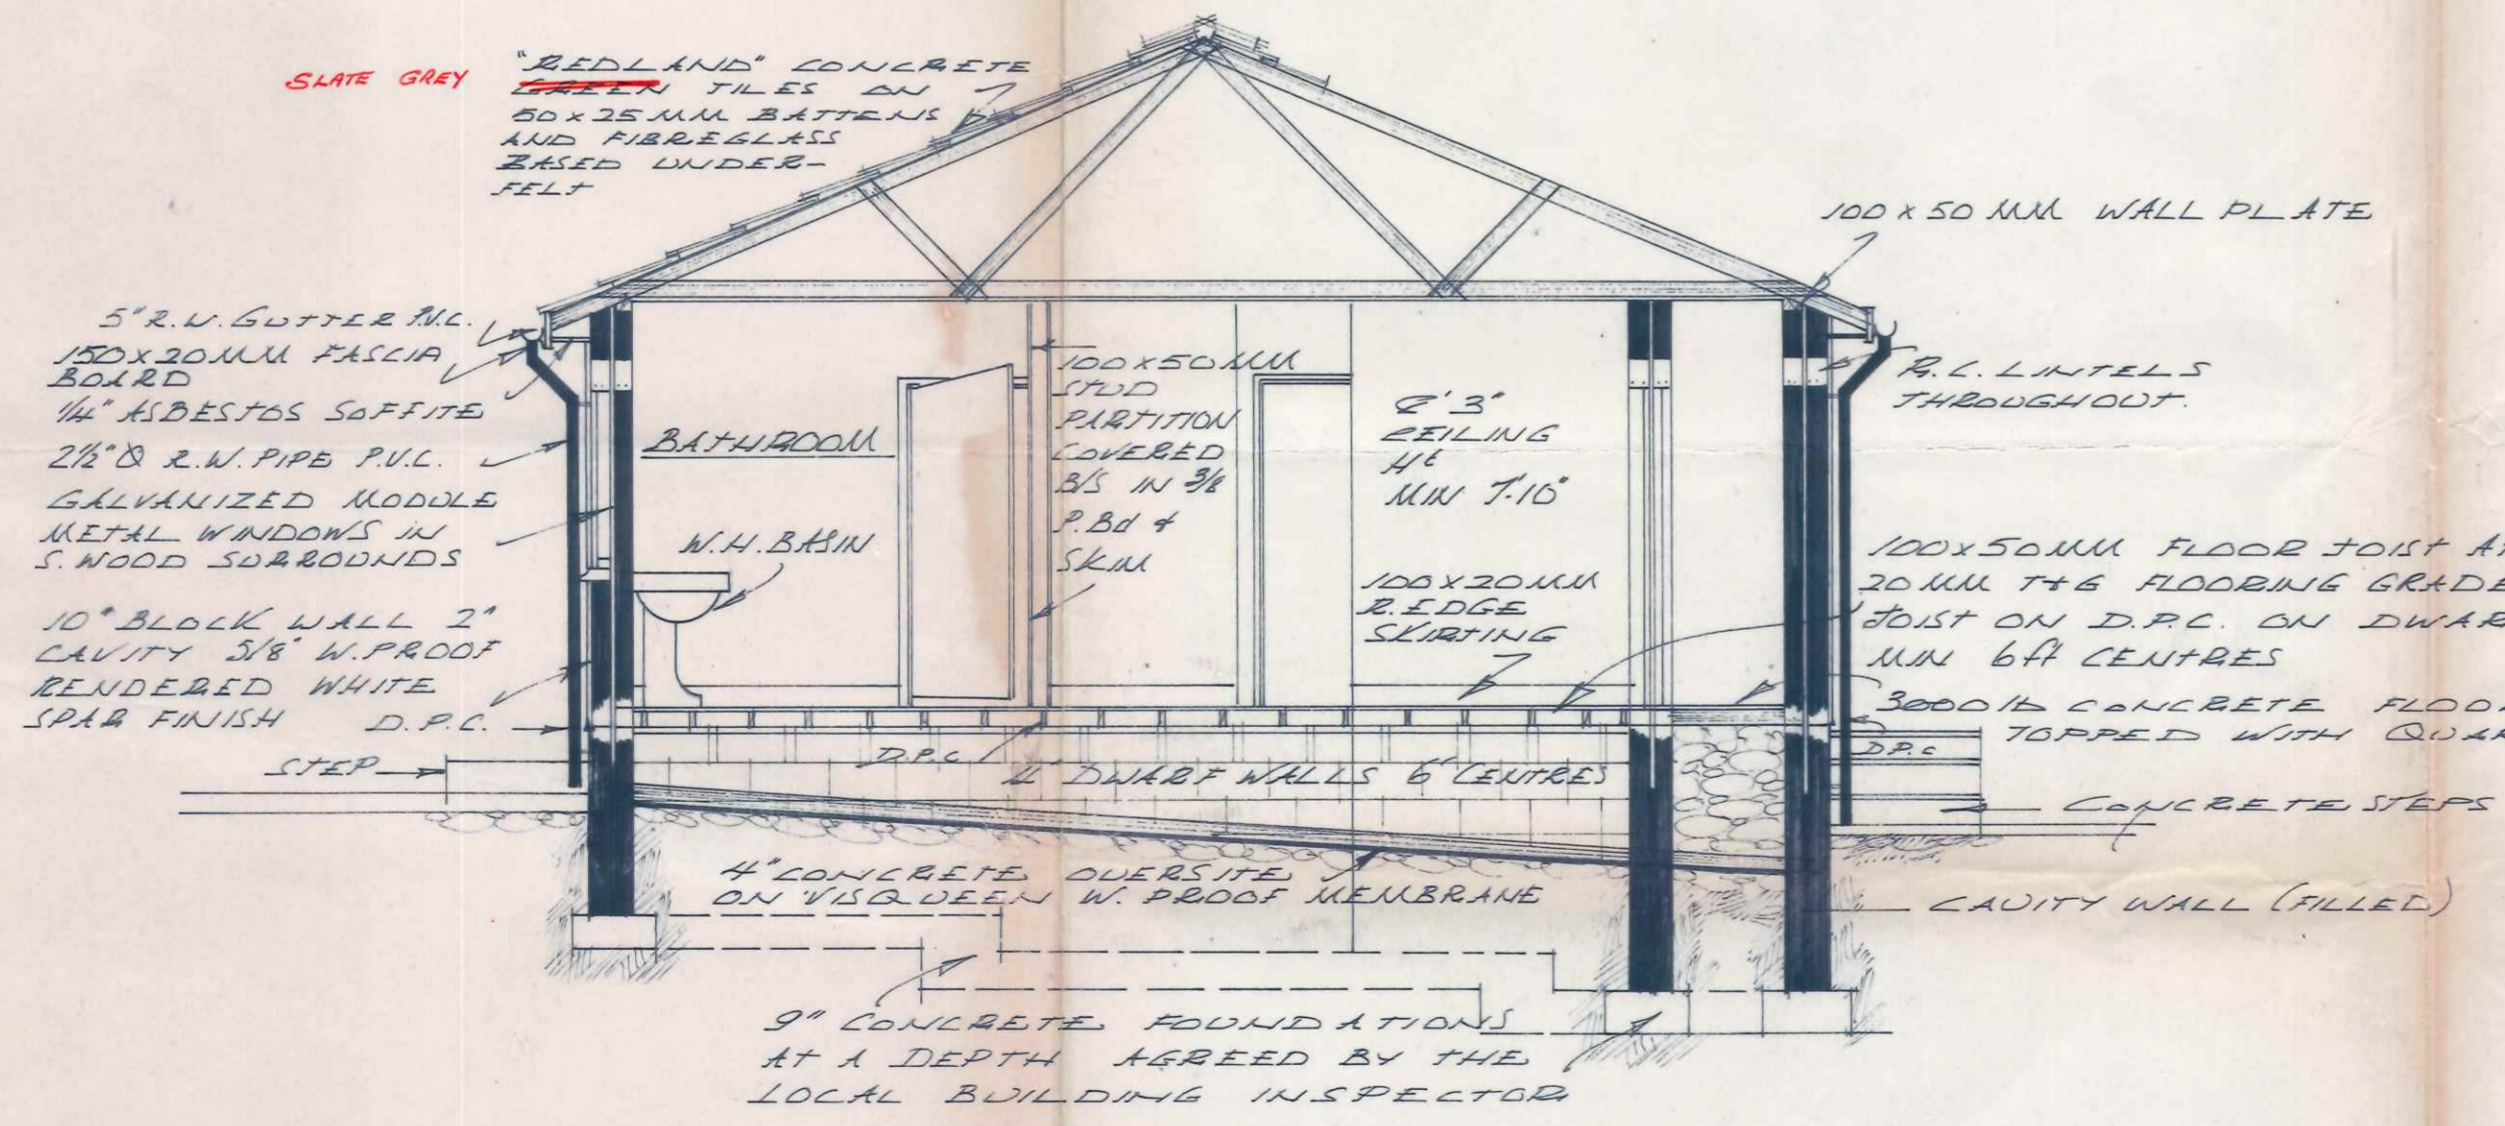 SLATE GREY
"REDLAND" CONCRETE
GREEN TILES ON
50 x 25 MM BATTENS
AND FIBREGLASS
BASED UNDER-
FELT
100 x 50 MM WALL PLATE
5" R.W. GUTTER P.V.C.
150 x 20 MM FASCIA
BOARD
1/4" ASBESTOS SOFFITE
2 1/2" Ø R.W. PIPE P.V.C.
GALVANIZED MODULE
METAL WINDOWS IN
S. WOOD SURROUNDS
10" BLOCK WALL 2"
CAVITY 5/8" W. PROOF
RENDERED WHITE
SPAR FINISH
D.P.C.
STEP
BATHROOM
W.H. BASIN
100 x 50 MM
STUD
PARTITION
COVERED
B/S IN 3/8
P.Bd &
SKIM
8' 3"
CEILING
Ht
MIN 7'-10"
100 x 20 MM
R. EDGE
SKIRTING
R.C. LINTELS
THROUGHOUT.
100 x 50 MM FLOOR JOIST
20 MM T&G FLOORING GRADE
JOIST ON D.P.C. ON
MIN 6ft CENTRES
3000 lb CONCRETE
TOPPED WITH
D.P.C
CONCRETE STEPS
CAVITY WALL (FILLED)
D.P.C
4" DWARF WALLS 6' CENTRES
4" CONCRETE OVERSITE
ON "VISQUEEN W. PROOF MEMBRANE
9" CONCRETE FOUNDATIONS
AT A DEPTH AGREED BY THE
LOCAL BUILDING INSPECTOR